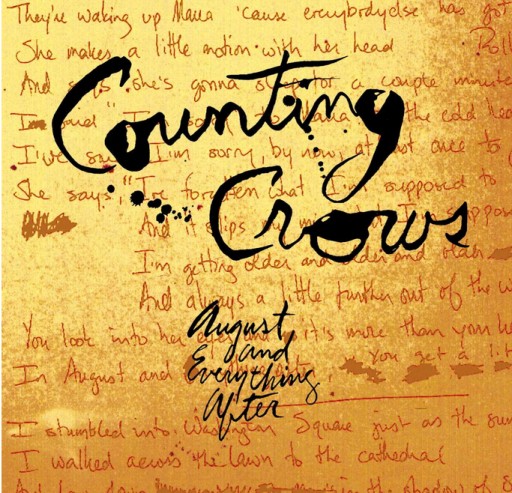 They're waking up Maria 'cause everybody else has got
She makes a little motion with her head
And says she's gonna sleep for a couple minute
Counting
I've I'm sorry, by now, at once to
She says, "I've forgotten what I'm supposed to
Crows
And it slips my
I'm getting older and older and older
And always a little further out of the
August
You look into her eyes it's more than your
and
In August and You get a lit
Everything
After
I stumbled into Washington Square just as the sun
I walked across the lawn to the cathedral
in the shadow of